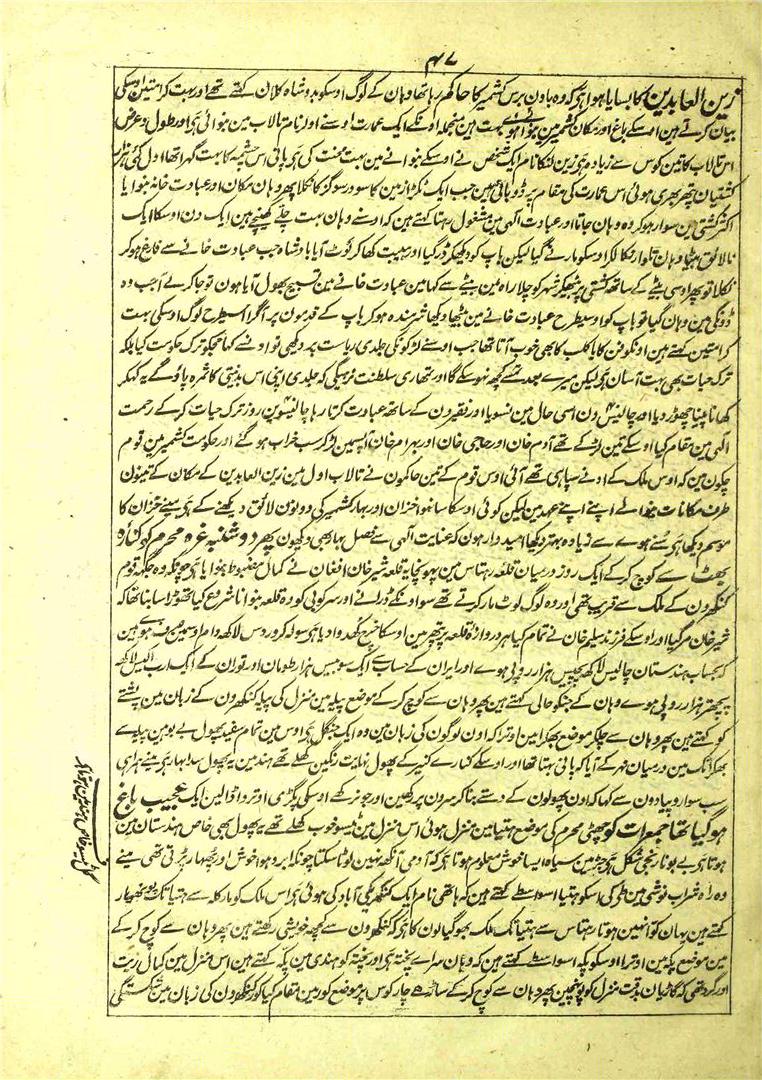 ۴۷
زین العابدین کا بسایا ہوا ہی کہ وہ باون برس کشمیر کا حاکم رہا تھا وہان کے لوگ اوسکو بدو شاہ کلان کہتے تھے اور بہت کرامتین اوسکی
بیان کرتے ہین اوسکے باغ اور مکان کشمیر مین بہت ہین منجملہ اونکے ایک عمارت اوسنے اولر نام تالاب مین بنوائی ہی اور طول و عرض
اس تالاب کا تین کوس سے زیادہ ہی زین لنکا نام ایک شخص نے اوسکے بنوانے مین بہت محنت کی ہی پانی اس چشمہ کا بہت گہرا تھا اول کئی ہزار
کشتیان پتھر بھری ہوئی اس عمارت کی مقام پر ڈوبائی تہین جب ایک ٹکڑا زمین کا سو در سو گز کا نکلا پھر وہان مکان اور عبادت خانہ بنوایا
اکثر کشتی مین سوار ہو کر وہ وہان جاتا اور عبادت الٰہی مین مشغول رہتا کہتے ہین کہ اوسنے وہان بہت چلے کھینچے ہین ایک دن اوسکا ایک
نالائق بیٹا وہان تلوار نکالکر اوسکو مارنے گیا لیکن باپ کو دیکھکر ڈر گیا اور ہیبت کھا کر لوٹ آیا بادشاہ جب عبادت خانے سے فارغ ہو کر
نکلا تو پھر اوسی بیٹے کے ساتھ کشتی پر بیٹھکر شہر کو چلا راہ مین بیٹے سے کہا مین عبادت خانے مین تسبیح بھول آیا ہون تو جا کر لے آ جب وہ
ڈونگی مین وہان گیا تو باپ کو اوسیطرح عبادت خانے مین بیٹھا دیکھا شرمندہ ہو کر باپ کے قدمون پر گرا اسیطرح لوگ اوسکی بہت
کرامتین کہتے ہین اونکو فن کایا کلپ کا بھی خوب آتا تھا جب اوسنے لڑکونکی جلدی ریاست پر دیکھی تو اونسے کہا مجکو ترک حکومت کیا بلکہ
ترک حیات بھی بہت آسان ہی لیکن میرے بعد تمسے کچھ نہو سکے گا اور تمھاری سلطنت نرہیگی کہ جلدی اپنی اس بدنیتی کا ثمرہ پاؤ گے یہ کہکر
کھانا پینا چھوڑ دیا اور چالیس دن اسی حال مین نسویا اور فقیرون کے ساتھ عبادت کرتا رہا چالیسوین روز ترک حیات کر کے رحمت
الٰہی مین مقام کیا اوسکے تین لڑکے تھے آدم خان اور حاجی خان اور بہرام خان آپسمین لڑ کر سب خراب ہو گئے اور حکومت کشمیر مین قوم
چکون مین کہ اوس ملک کے ادنے سپاہی تھے آئی اوس قوم کے تین حاکمون نے تالاب اولر مین زین العابدین کے مکان کے تینون
طرف مکانات بنوائے اپنے اپنے عہد مین لیکن کوئی اوسکا سا نہوا خزان اور بہار کشمیر کی دونون لائق دیکھنے کے ہی مینے خزان کا
موسم دیکھا ہی سنے ہوے سے زیادہ بہتر دیکھا امیدوار ہون کہ عنایت الٰہی سے فصل بہار بھی دیکھون پھر دوشنبہ غرہ محرم کو کنارہ
بھٹ سے کوچ کر کے ایک روز درمیان قلعہ رہتاس مین پہونچا یہ قلعہ شیر خان افغان نے کمال مضبوط بنوایا ہی چونکہ وہ جگہ قوم
گنگہرون کے ملک سے قریب تھی اور وہ لوگ لوٹ مار کرتے تھے سو اونکے ڈرانے اور سرکوبی کو وہ قلعہ بنوانا شروع کیا تھوڑا سا بنا تھا کہ
شیر خان مر گیا اور اوسکے فرزند سلیم خان نے تمام کیا ہر دروازۂ قلعہ پر پتھر مین اوسکا خرچ کھدوا دیا ہی سولہ کرور دس لاکھ دام اوسمین صرف ہوے ہین
کہ بحساب ہندستان چالیس لاکھ پچیس ہزار روپی ہوے اور ایران کے حساب سے ایک سو بیس ہزار طومان اور توران کے ایک ارب اکیس لاکھ
پچھتر ہزار روپی ہوے وہان کے جنکو حالی کہتے ہین پھر وہان سے کوچ کر کے موضع پیلہ مین منزل کی پیلہ گنگہرون کے زبان مین پشتے
کو کہتے ہین پھر وہان سے چلکر موضع بھکرا مین اوترا کہ اون لوگون کی زبان مین وہ ایک جنگل ہی اوس مین تمام سفید پھول بے بو ہین پیلہ سے
بھکرا تک مین درمیان نہر کے آیا کہ پانی بہتا تھا اور اوسکے کنارے کنیر کے پھول نہایت رنگین کھلے تھے ہند مین یہ پھول سدا بہار ہی مینے ہمراہی
سب سوار و پیادون سے کہا کہ اون پھولون کے دستے بنا کر سرون پر رکھین اور جو نرکھے اوسکی پگڑی اوتروا ڈالین ایک عجیب باغ
ہو گیا تھا جمعرات کو چھٹی محرم کی موضع ہتیا مین منزل ہوئی اس منزل مین ٹیسو خوب کھلے تھے یہ پھول بھی خاص ہندستان مین
ہوتا ہی بے بو نارنجی شکل ہی جڑ مین سیاہ ایسا خوش معلوم ہوتا ہی کہ آدمی آنکھ نہین لوٹا سکتا چونکہ ابر و ہوا خوش اور پھوہار پڑتی تھی مینے
وہ راہ شراب نوشی مین طی کی اسکو ہتیا اسواسطے کہتے ہین کہ ہاتھی نام ایک گنگہر کی آباد کی ہوئی ہی اس ملک کو مارگلہ سے ہتیا تک پوٹھوہار
کہتے ہین یہان کوا نہین ہوتا رہتاس سے ہتیا تک ملک بھوگیالون کا ہی کہ گنگہرون سے کچھ خویشی رکھتے ہین پھر وہان سے کوچ کر کے
مین موضع پکہ مین اوترا اوسکو پکہ اسواسطے کہتے ہین کہ وہان سرائے پختہ ہی اور پختہ کو ہندی مین پکہ کہتے ہین اس منزل مین کمال ریت
اور گرد تھی کہ گاڑیان بدقت منزل کو پہونچین پھر وہان سے کوچ کر کے ساڑھے چار کوس پر موضع کور مین مقام کیا کور گنگہرون کی زبان مین شکستگی